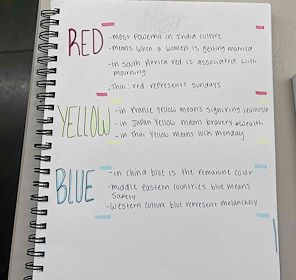 RED
-most powerful in India culture
-means when a women is getting married
-in south Africa red is associated with
mourning
-Thai: red represents sundays
YELLOW
-in France yellow means signifying jealousy
-in Japan yellow means bravery & wealth
-in Thai yellow means luck monday
BLUE
-in china blue is the feminine color
-middle eastern countries blue means
safety
-Western culture blue represent melancholy